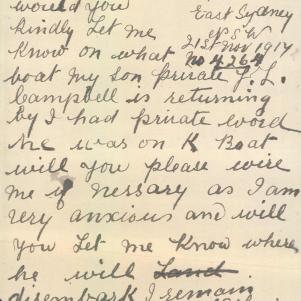 would you
East Sydney
Kindly Let me
N.S.W
Know on what
21st Nov 1917
No 4264
boat my son private J. L.
Campbell is returning
by I had private word
he was on K Boat
will you please wire
me if nessary as I am
very anxious and will
you Let me Know where
he will Land
disembark I remain